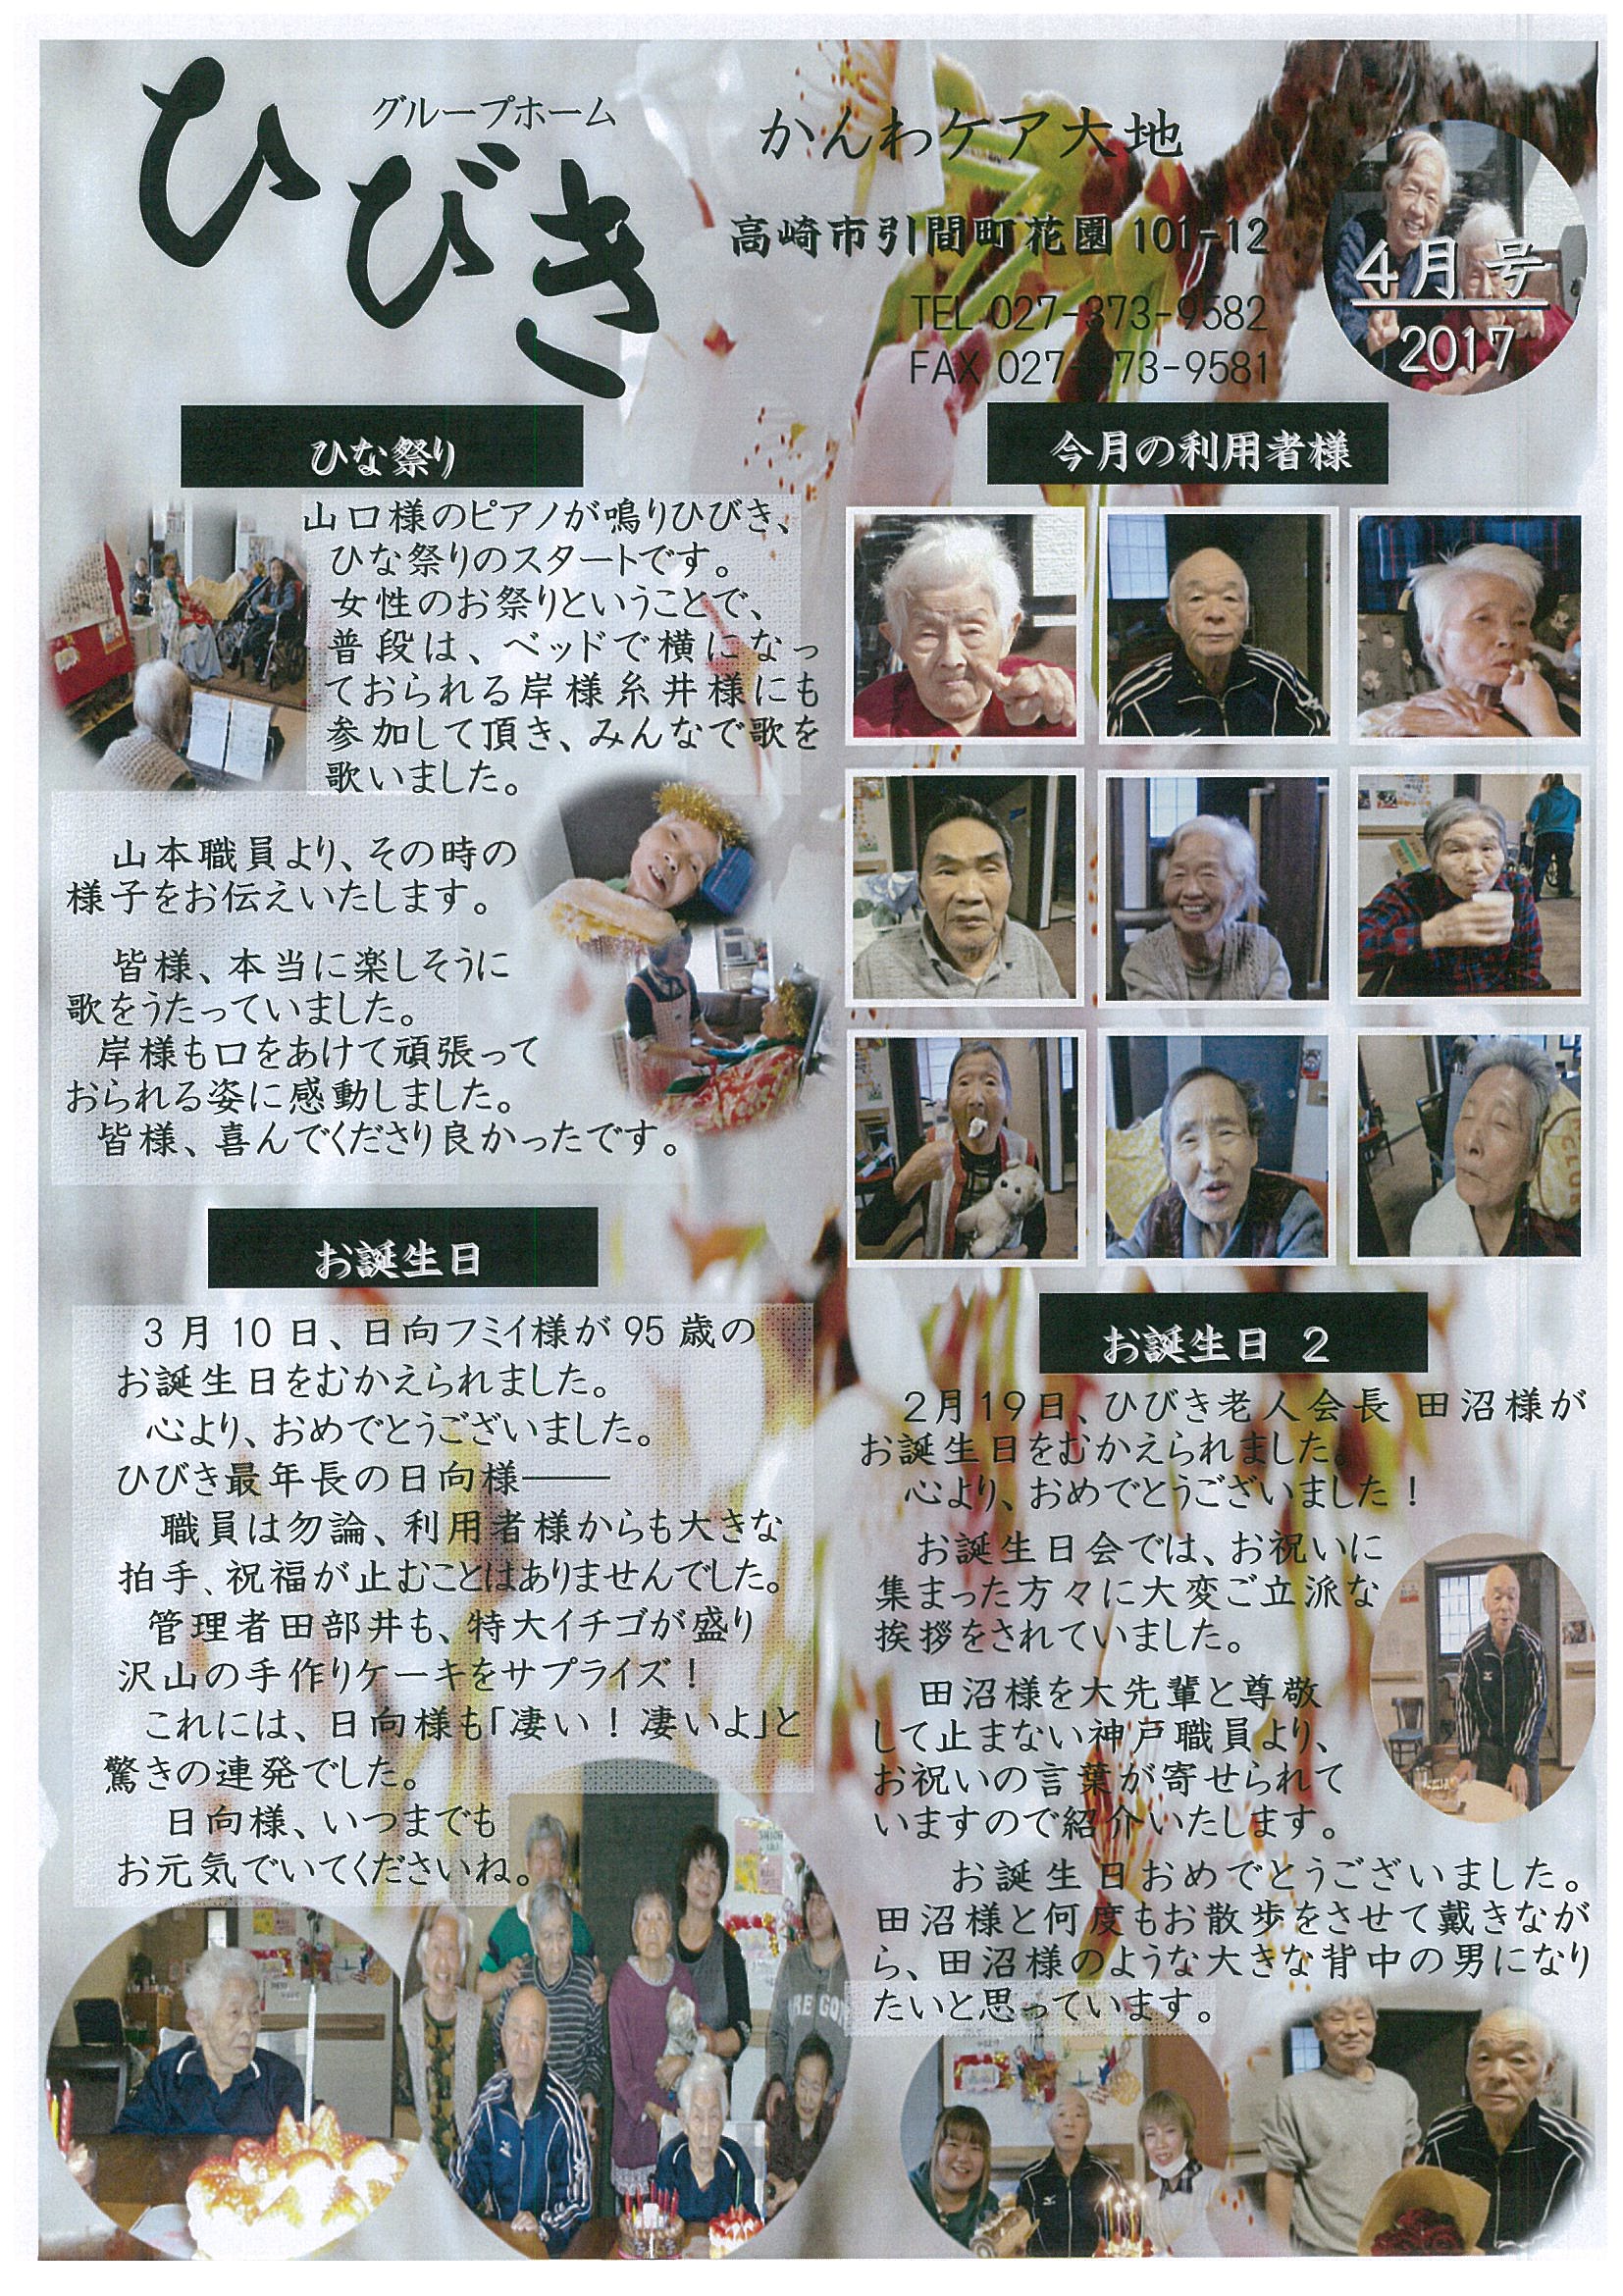 グループホーム
ひびき
かんわケア大地
高崎市引間町花園 101-12
TEL 027-373-9582
FAX 027-373-9581
4月号
2017
ひな祭り
山口様のピアノが鳴りひびき、
ひな祭りのスタートです。
女性のお祭りということで、
普段は、ベッドで横になっ
ておられる岸様糸井様にも
参加して頂き、みんなで歌を
歌いました。
山本職員より、その時の
様子をお伝えいたします。
皆様、本当に楽しそうに
歌をうたっていました。
岸様も口をあけて頑張って
おられる姿に感動しました。
皆様、喜んでくださり良かったです。
お誕生日
3月10日、日向フミイ様が95歳の
お誕生日をむかえられました。
心より、おめでとうございました。
ひびき最年長の日向様――
職員は勿論、利用者様からも大きな
拍手、祝福が止むことはありませんでした。
管理者田部井も、特大イチゴが盛り
沢山の手作りケーキをサプライズ!
これには、日向様も「凄い!凄いよ」と
驚きの連発でした。
日向様、いつまでも
お元気でいてくださいね。
今月の利用者様
お誕生日 2
2月19日、ひびき老人会長 田沼様が
お誕生日をむかえられました。
心より、おめでとうございました!
お誕生日会では、お祝いに
集まった方々に大変ご立派な
挨拶をされていました。
田沼様を大先輩と尊敬
して止まない神戸職員より、
お祝いの言葉が寄せられて
いますので紹介いたします。
お誕生日おめでとうございました。
田沼様と何度もお散歩をさせて戴きなが
ら、田沼様のような大きな背中の男になり
たいと思っています。